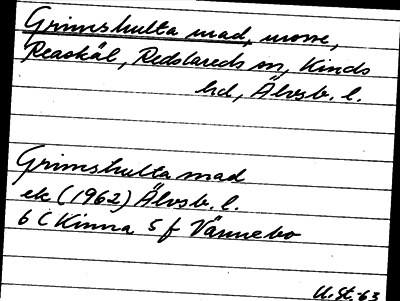 Grimshulta mad, mosse,
Reaskäl, Redslareds sn, Kinds
hd, Älvsb. l.
Grimshulta mad
ek (1962) Älvsb. l.
6 C Kinna 5 f Vännebo
U.St.-63